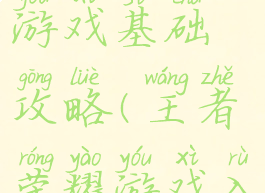 yóu xì jī chǔ
游戏基础
gōng lüè wáng zhě
攻略(王者
róng yào yóu xì rù
荣耀游戏入